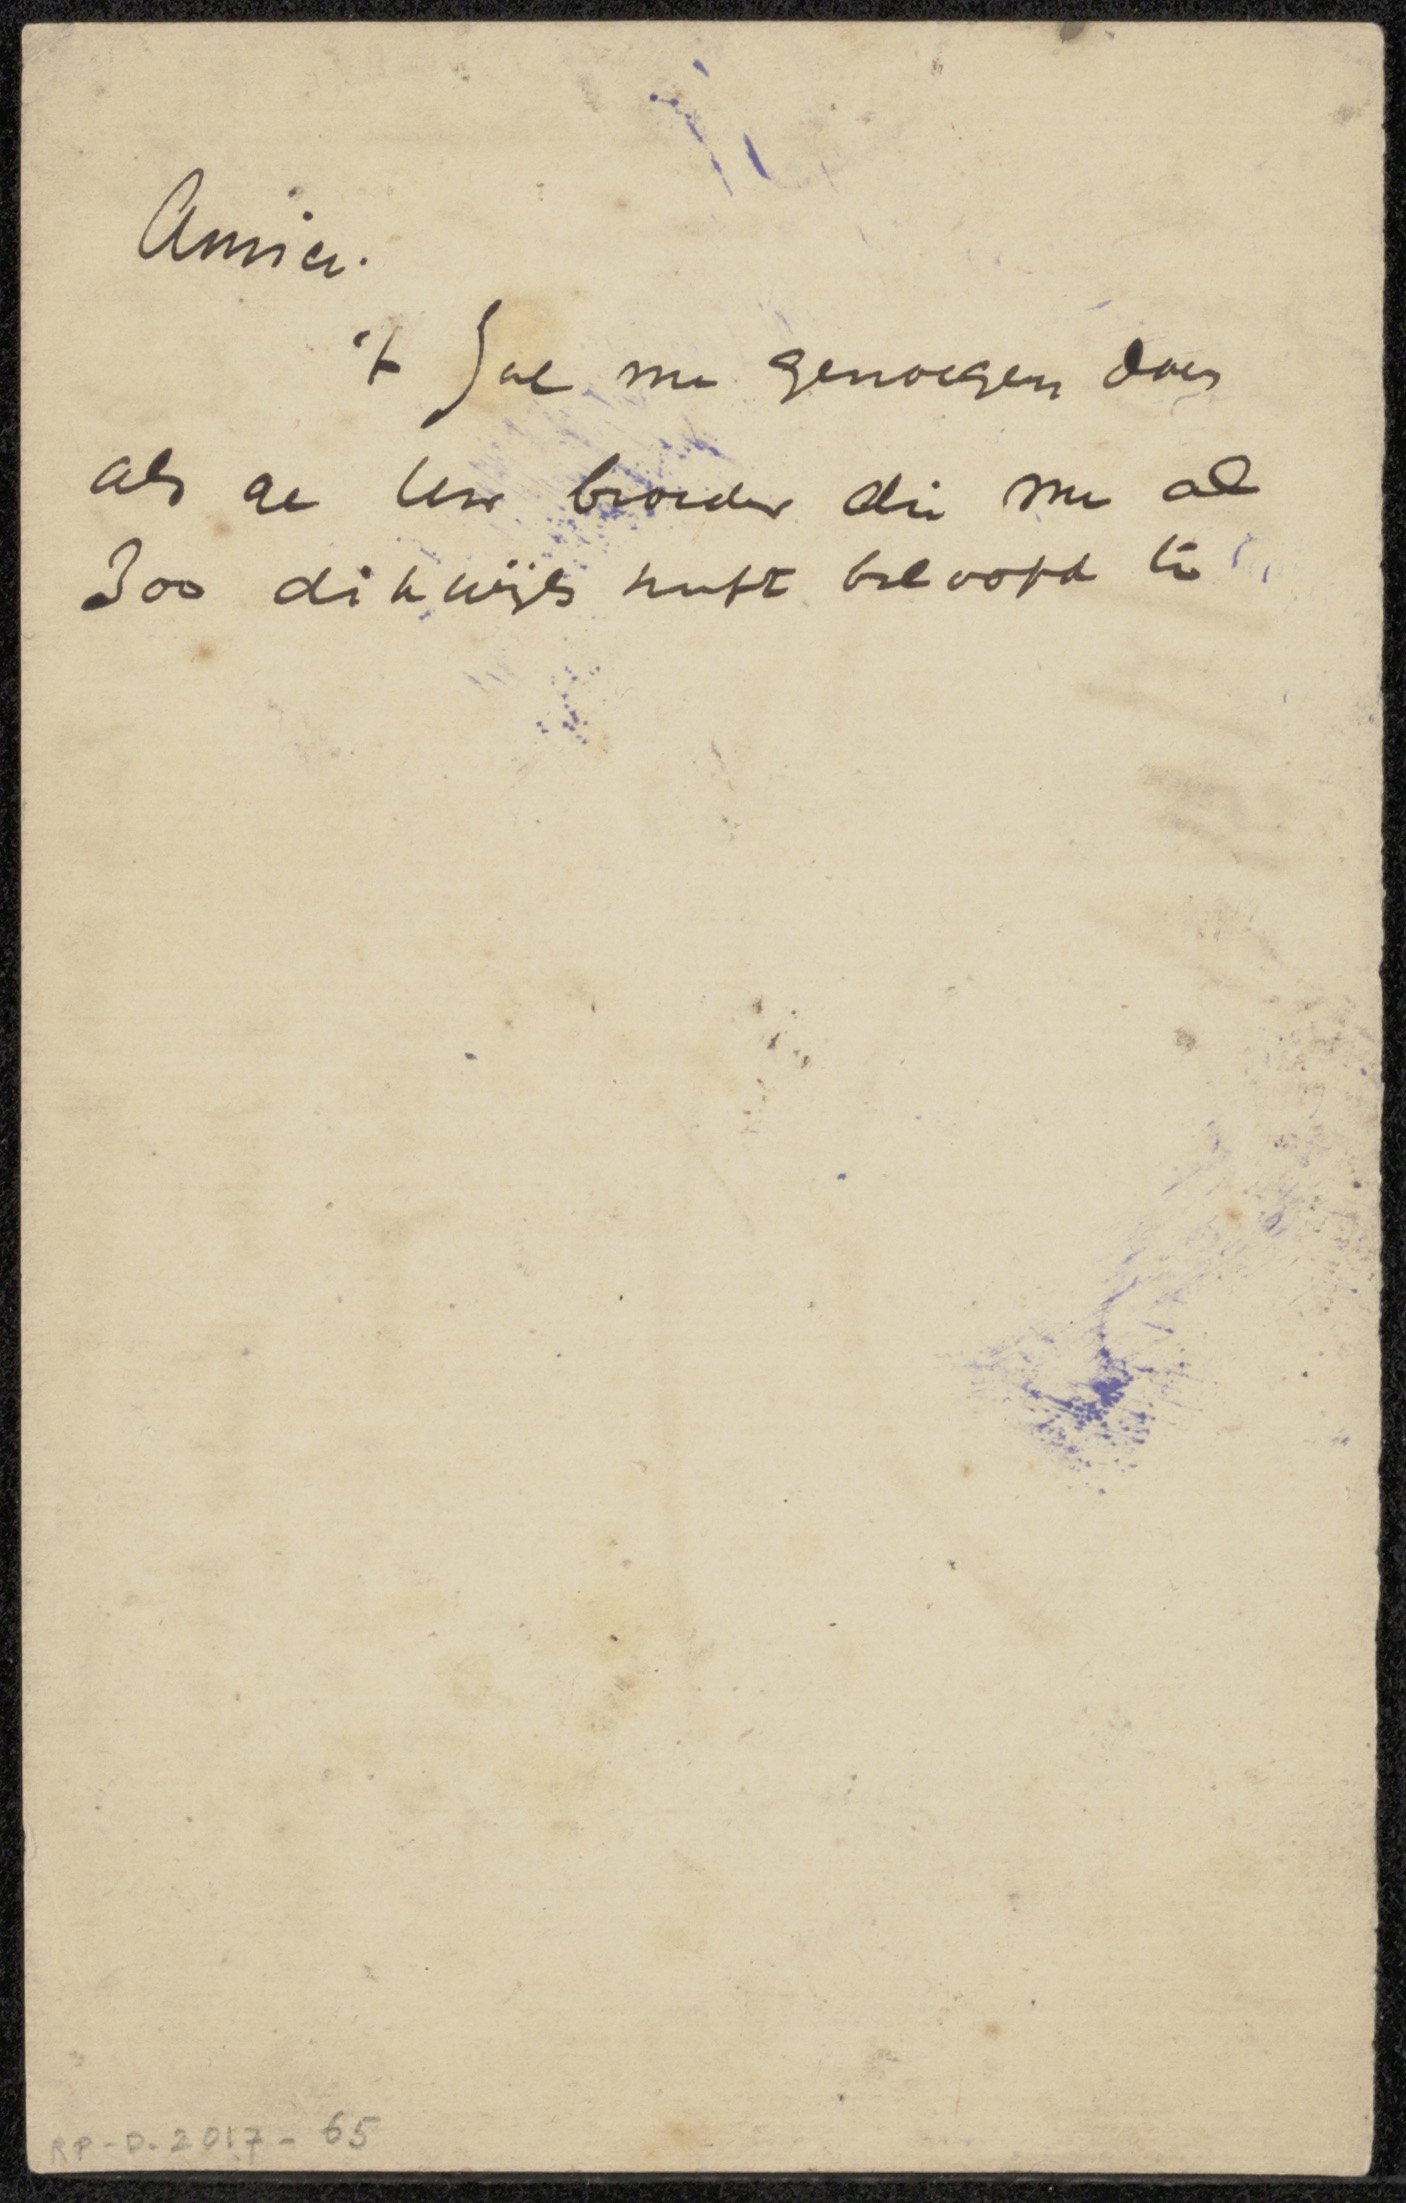 Amice.
't Zal me genoegen doen
als ge Uw broeder die me al
zoo dikwijls heeft beloofd te
RP-D-2017-65